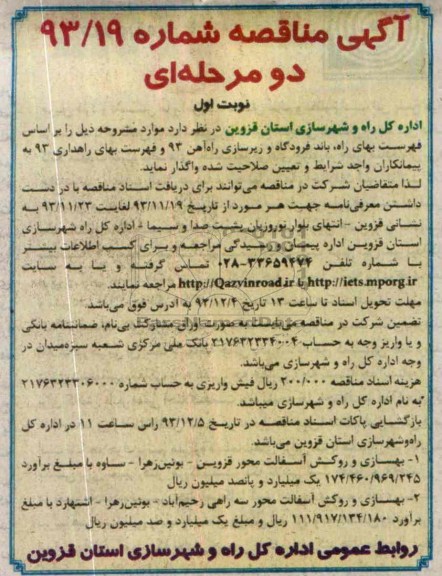 آگهی مناقصه شماره ۹۳/۱۹
دو مرحله‌ای
نوبت اول
اداره کل راه و شهرسازی استان قزوین در نظر دارد موارد مشروحه ذیل را بر اساس
فهرست بهای راه، باند فرودگاه و زیرسازی راه‌آهن ۹۳ و فهرست بهای راهداری ۹۳ به
پیمانکاران واجد شرایط و تعیین صلاحیت شده واگذار نماید.
لذا متقاضیان شرکت در مناقصه می‌توانند برای دریافت اسناد مناقصه با در دست
داشتن معرفی‌نامه جهت هر مورد از تاریخ ۹۳/۱۱/۱۹ لغایت ۹۳/۱۱/۲۳ به
نشانی قزوین - انتهای بلوار نوروزیان پشت صدا و سیما - اداره کل راه شهرسازی
استان قزوین اداره پیمان و رسیدگی مراجعه و برای کسب اطلاعات بیشتر
با شماره تلفن ۳۳۶۵۹۴۷۴-۰۲۸ تماس گرفته و یا به سایت
http://iets.mporg.ir یا http://Qazvinroad.ir مراجعه نمایند.
مهلت تحویل اسناد تا ساعت ۱۳ تاریخ ۹۳/۱۲/۴ به آدرس فوق می‌باشد.
تضمین شرکت در مناقصه می‌بایست به صورت اوراق مشارکت بی‌نام، ضمانتنامه بانکی
و یا واریز وجه به حساب بانک ملی مرکزی شعبه سبزه‌میدان در
وجه اداره کل راه و شهرسازی می‌باشد.
هزینه اسناد مناقصه ۲۰۰/۰۰۰ ریال فیش واریزی به حساب شماره ۲۱۷۶۲۳۳۰۶۰۰۰
به نام اداره کل راه و شهرسازی میباشد.
بازگشایی پاکات اسناد مناقصه در تاریخ ۹۳/۱۲/۵ راس ساعت ۱۱ در اداره کل
راه‌وشهرسازی استان قزوین می‌باشد.
۱- بهسازی و روکش آسفالت محور قزوین - بوئین‌زهرا - ساوه با مبلغ برآورد
۱۷۴/۴۶۰/۹۶۹/۲۴۵ یک میلیارد و پانصد میلیون ریال
۲- بهسازی و روکش آسفالت محور سه راهی رحیم‌آباد - بوئین‌زهرا - اشتهارد با مبلغ
برآورد ۱۱۱/۹۱۷/۱۳۴/۱۸۰ ریال و مبلغ یک میلیارد و صد میلیون ریال
روابط عمومی اداره کل راه و شهرسازی استان قزوین